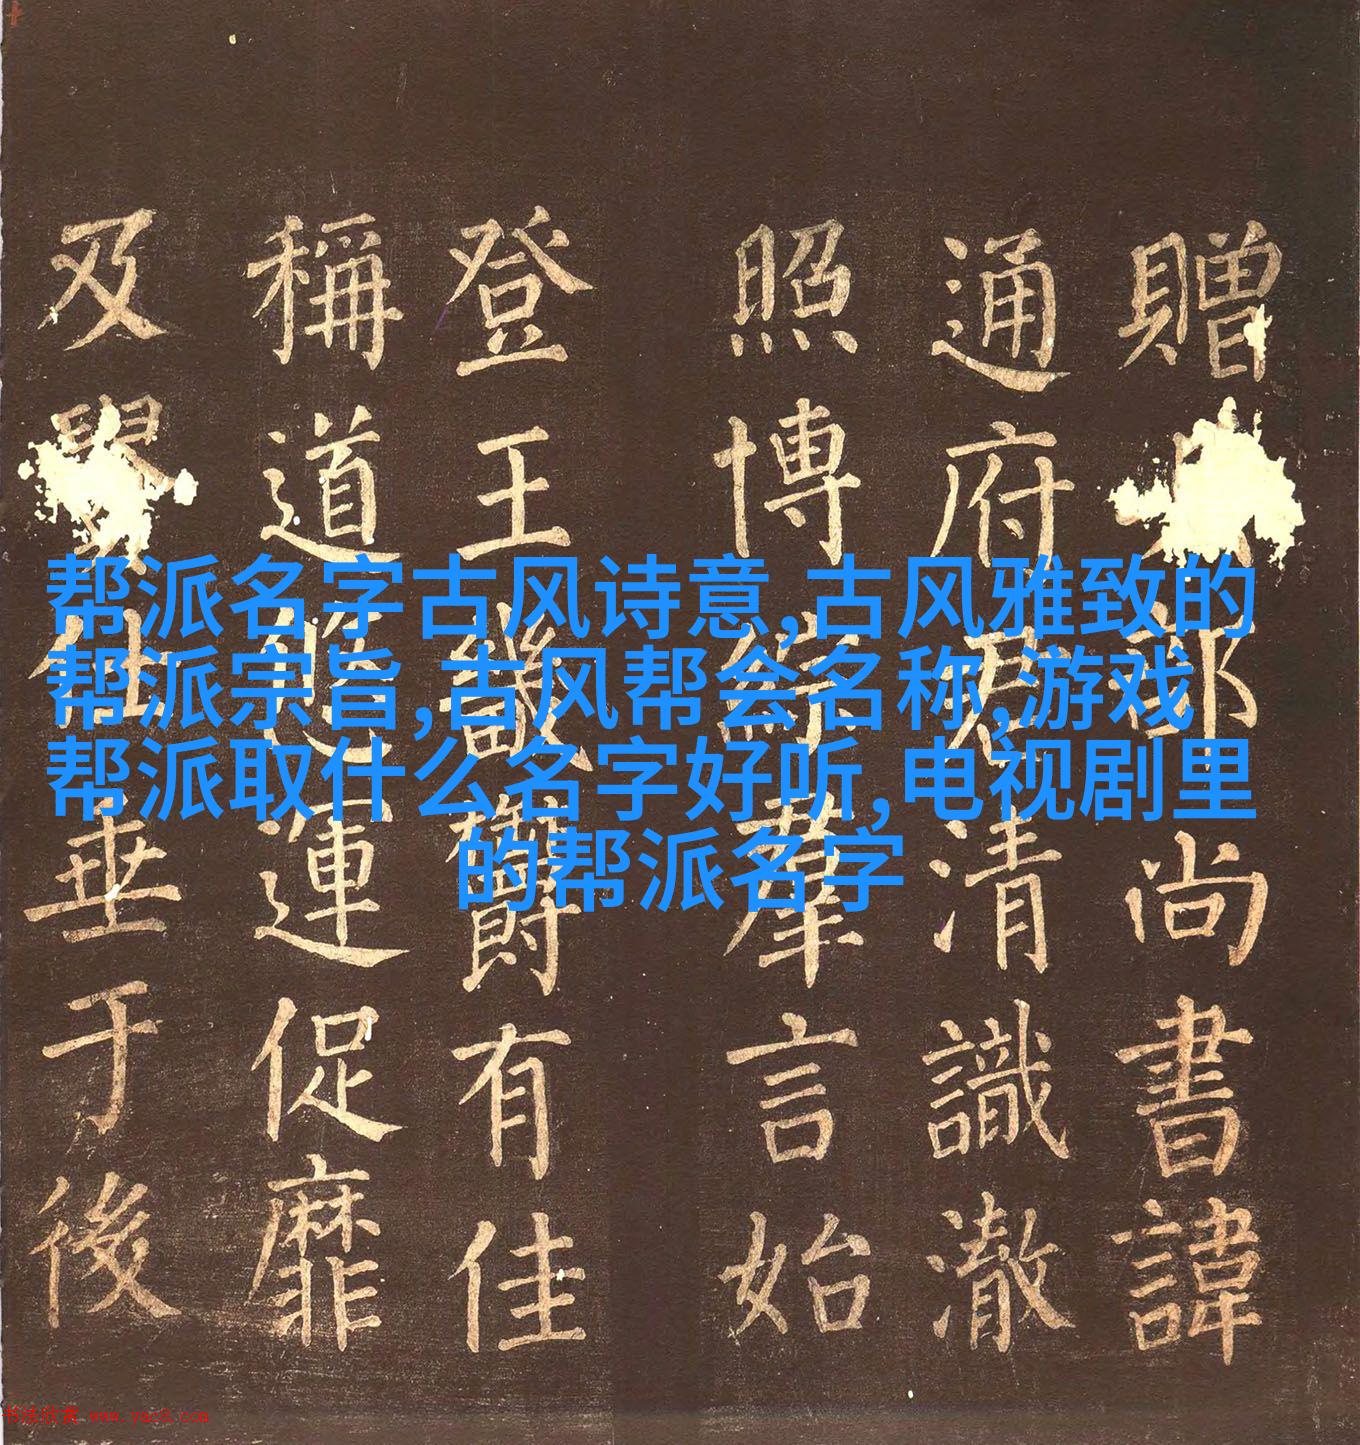 贈部尚書諱
通府君清識澈
照博綜羣言始
登王畿有佳
稱道悠運促靡
及仕垂于後
帮派名字古风诗意,古风雅致的
帮派宗旨,古风帮会名称,游戏
帮派取什么名字好听,电视剧里
的帮派名字
书法欣赏 www.yac8.com